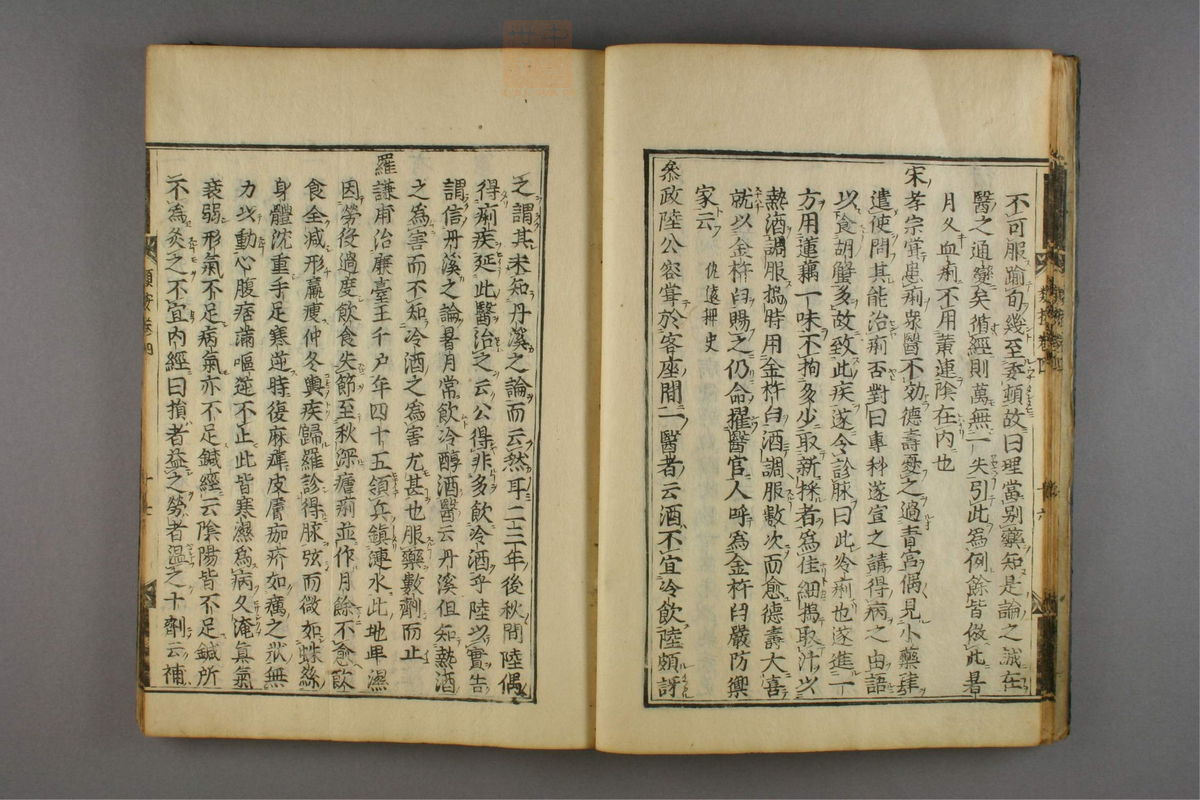 不可服踰旬幾至委頓故曰理當别藥知是論之誠在
醫之通變矣循經則萬無一失引此為例餘皆倣此暑
月久血痢不用黄連陰在内也
宋孝宗甞患痢衆醫不効德壽憂之過青宮偶見小藥肆
遣使問其能治痢否對曰専科遂宣之請得病之由語
以食胡蟹多故致此疾遂令診脉曰此冷痢也遂進一
方用蓮藕一味不拘多少取新採者為佳細搗取汁以
熱酒調服搗時用金杵臼酒調服數次而愈德壽大喜
就以金杵臼賜之仍命擢醫官人呼為金杵臼嚴防禦
家云 仇遠稗史
叅政陸公容甞於客座間一醫者云酒不宜冷飲陸頗訝
之謂其未知丹溪之論而云然耳二三年後秋間陸偶
得痢疾延此醫治之云公得非多飲冷酒乎陸以實告
謂信丹溪之論暑月常飲冷醇酒醫云丹溪但知熱酒
之為害而不知冷酒之為害尤甚也服藥數劑而止
羅謙甫治廉臺王千户年四十五領兵鎮漣水此地卑濕
因勞役過度飲食失節至秋深瘧痢並作月餘不愈飲
食全减形羸瘦仲冬輿疾歸羅診得脉弦而微如蛛絲
身體沈重手足寒逆時復麻痺皮膚痂疥如癘之狀無
力以動心腹痞滿嘔逆不止此皆寒濕為病久淹眞氣
衰弱形氣不足病氣亦不足鍼經云陰陽皆不足鍼所
不為灸之不宜内經曰損者益之勞者温之十劑云補
類案卷四
十七